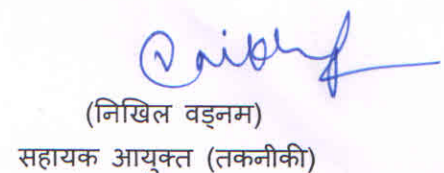 (निखिल वड्नम)
सहायक आयुक्त (तकनीकी)